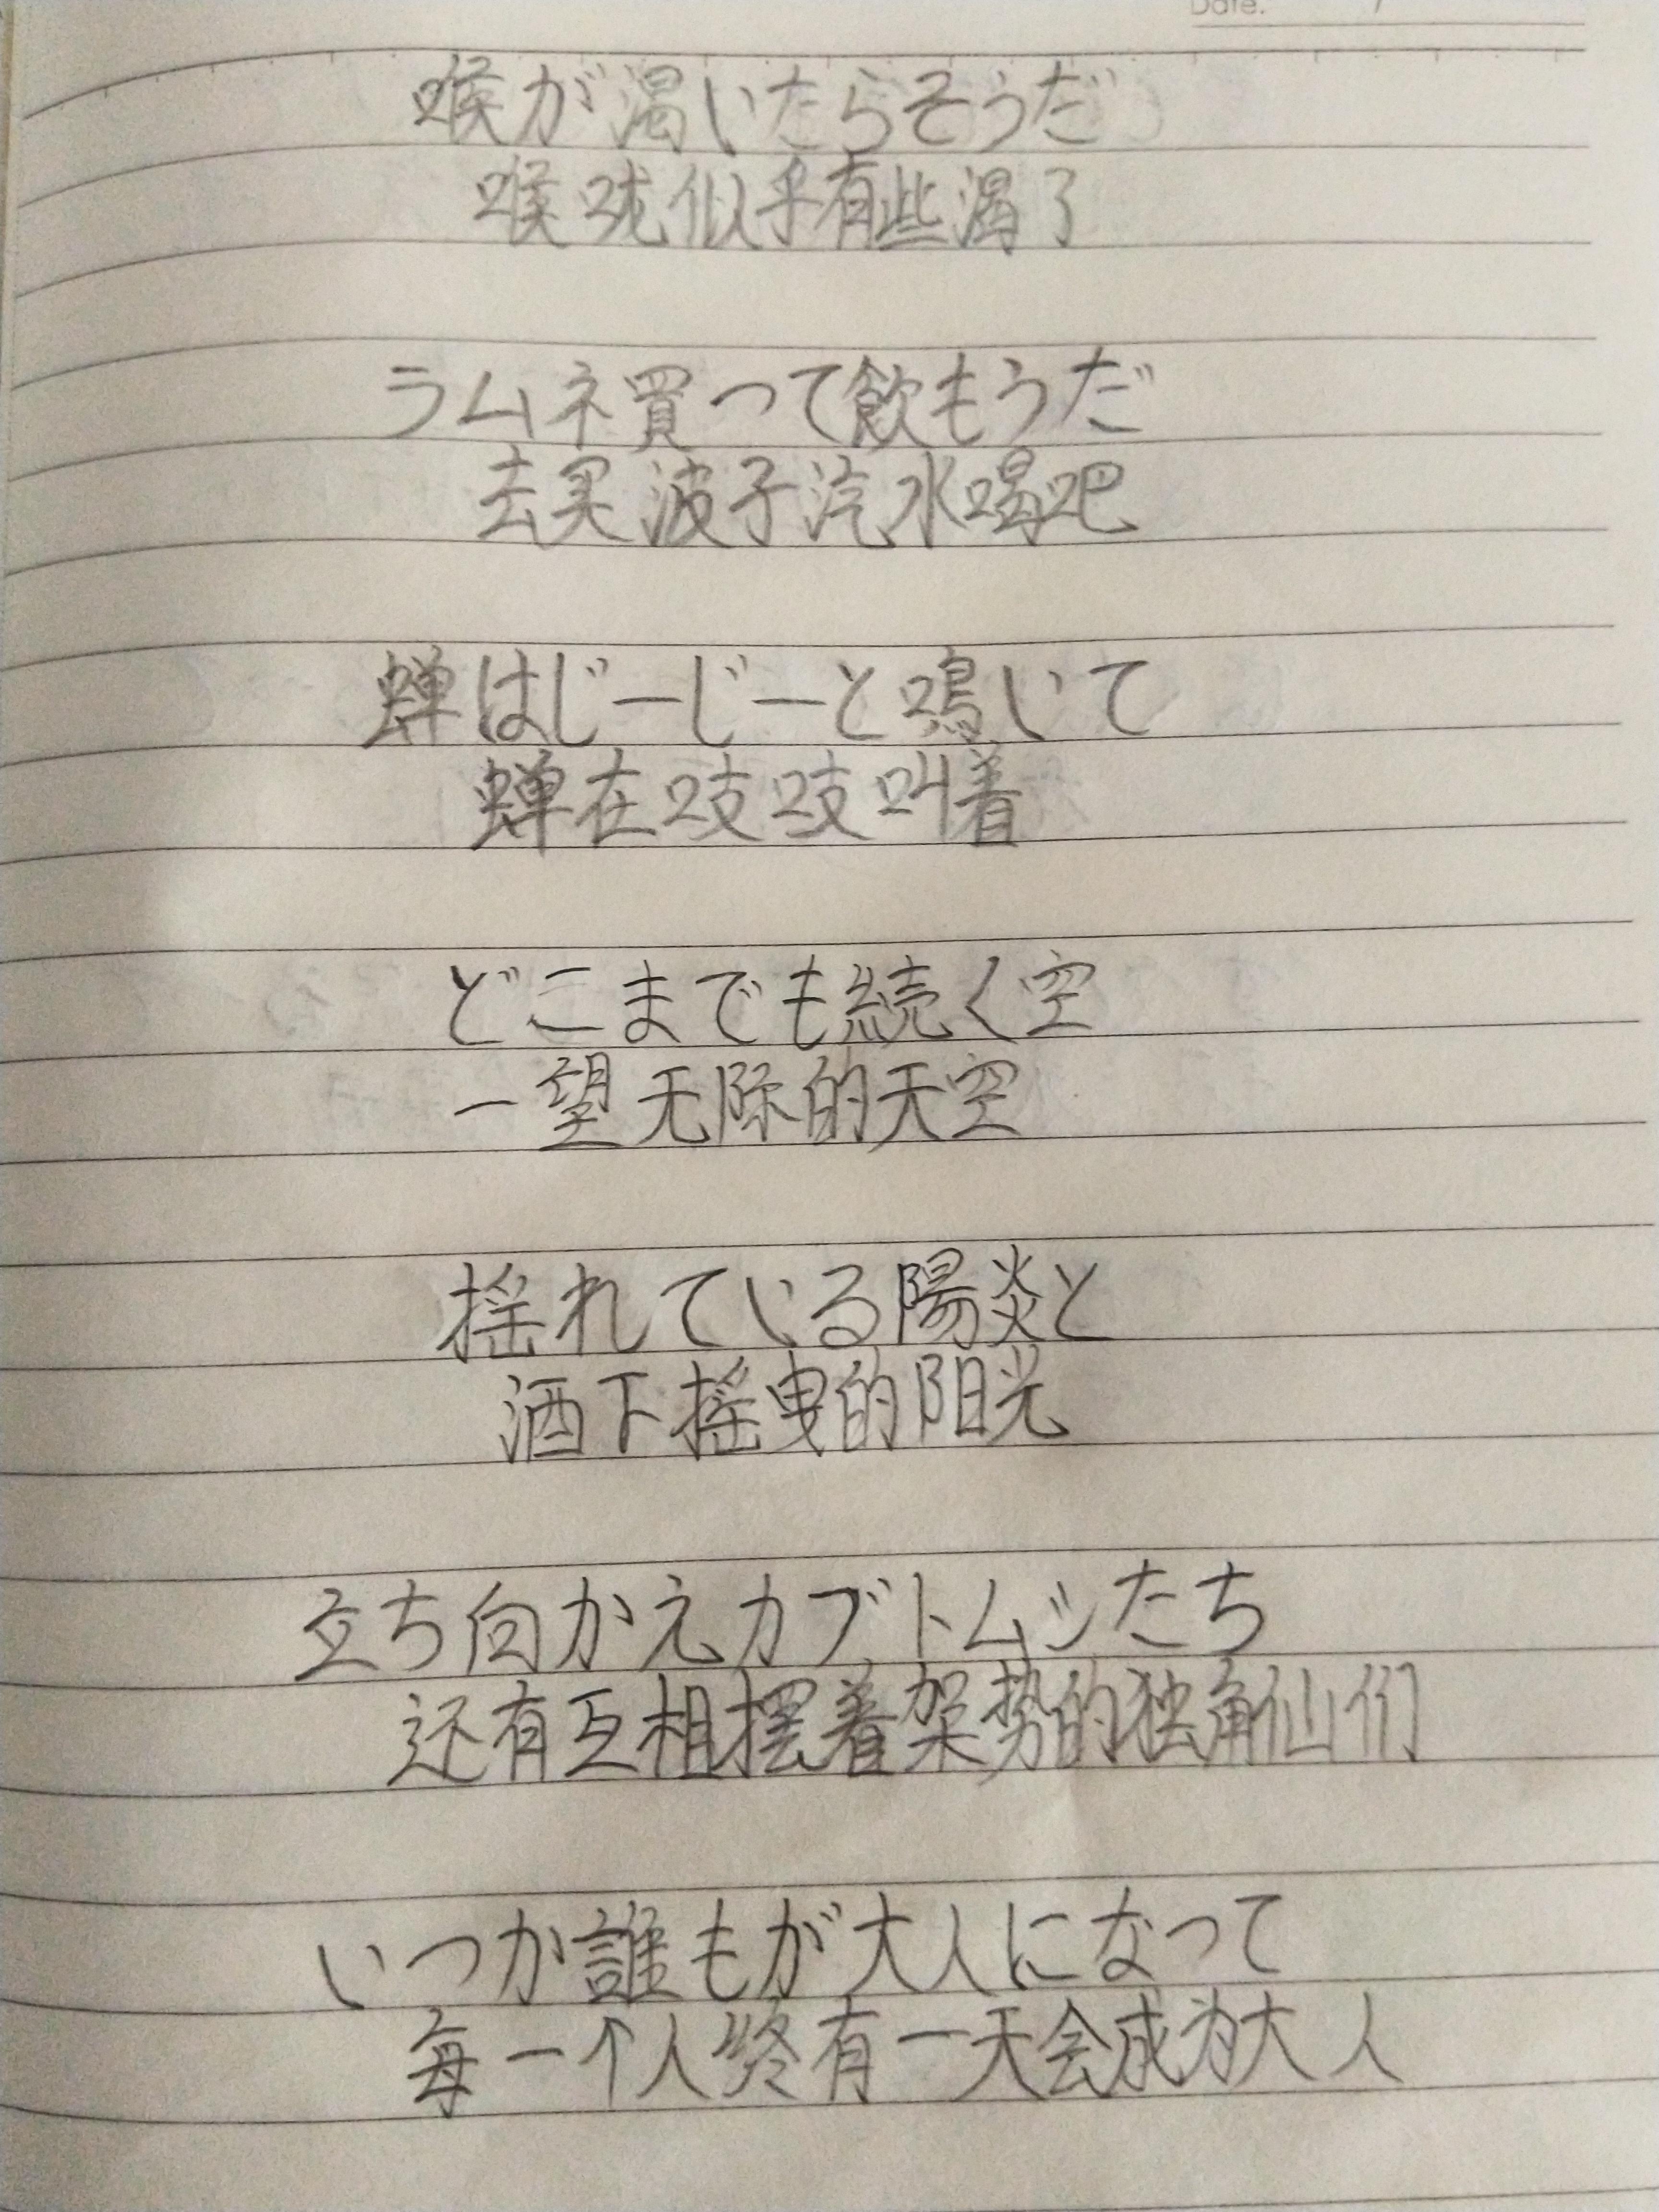 Date.
喉が渇いたらそうだ
喉咙似乎有些渴了
ラムネ買って飲もうだ
去买波子汽水喝吧
蝉はじーじーと鳴いて
蝉在吱吱叫着
どこまでも続く空
一望无际的天空
揺れている陽炎と
洒下摇曳的阳光
立ち向かえカブトムシたち
还有互相摆着架势的独角仙们
いつか誰もが大人になって
每一个人终有一天会成为大人